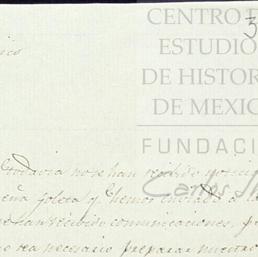 CENTRO DE
ESTUDIOS
DE HISTORIA
DE MEXICO
FUNDACI
Carlos Sl
3
ico
Todavia no se han recibido notici
eña Joleta y hemos enviado a
han recibido comunicaciones, p
o sea necesario preparar nuestro